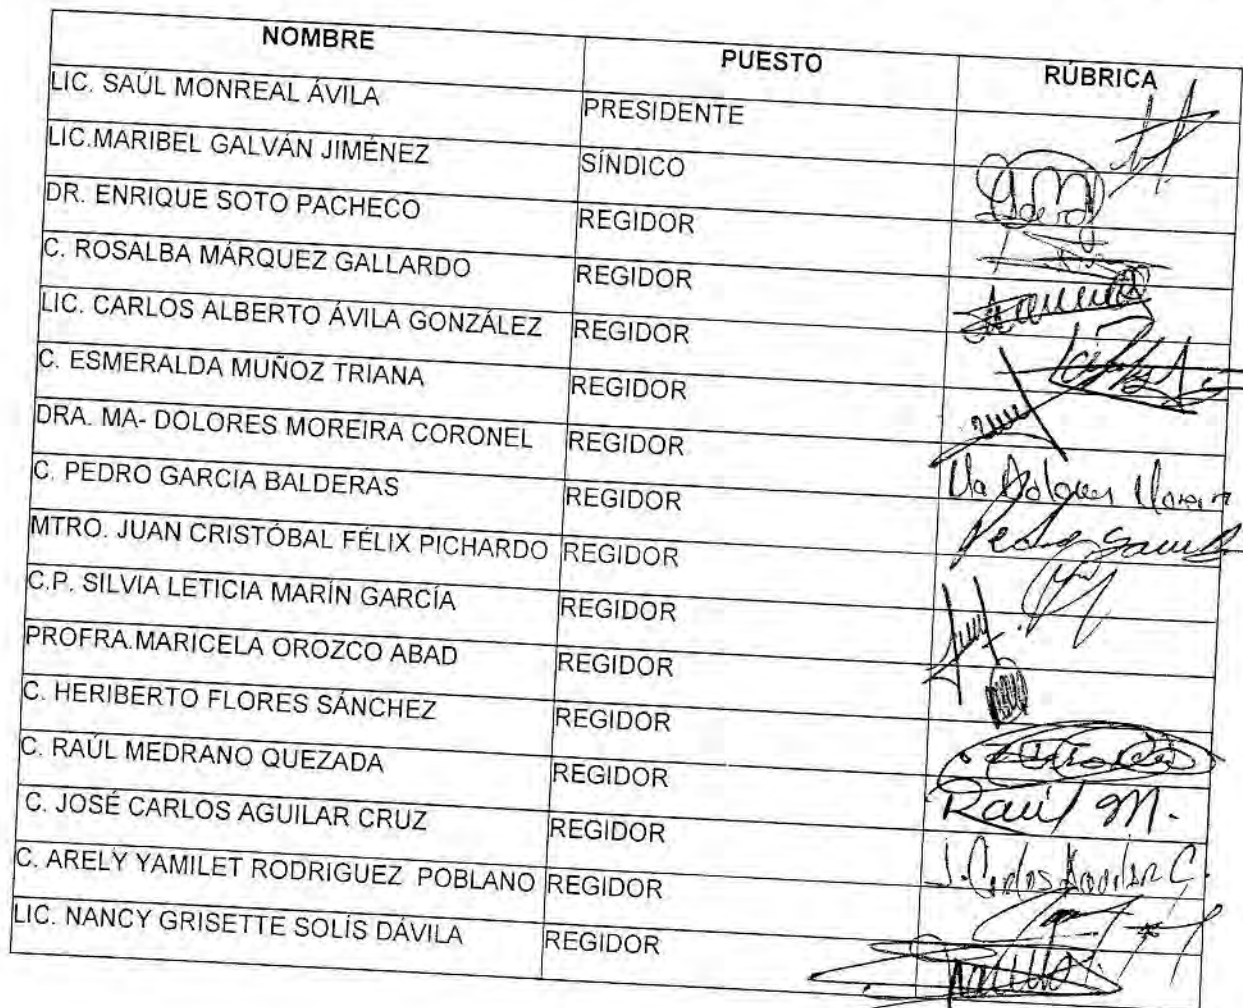 NOMBRE PUESTO RÚBRICA
LIC. SAÚL MONREAL ÁVILA PRESIDENTE
LIC.MARIBEL GALVÁN JIMÉNEZ SÍNDICO
DR. ENRIQUE SOTO PACHECO REGIDOR
C. ROSALBA MÁRQUEZ GALLARDO REGIDOR
LIC. CARLOS ALBERTO ÁVILA GONZÁLEZ REGIDOR
C. ESMERALDA MUÑOZ TRIANA REGIDOR
DRA. MA- DOLORES MOREIRA CORONEL REGIDOR Ma Dolores Moreira
C. PEDRO GARCIA BALDERAS REGIDOR Pedro Garcia B
MTRO. JUAN CRISTÓBAL FÉLIX PICHARDO REGIDOR
C.P. SILVIA LETICIA MARÍN GARCÍA REGIDOR
PROFRA.MARICELA OROZCO ABAD REGIDOR
C. HERIBERTO FLORES SÁNCHEZ REGIDOR
C. RAÚL MEDRANO QUEZADA REGIDOR Raúl M.
C. JOSÉ CARLOS AGUILAR CRUZ REGIDOR J. Carlos Aguilar C.
C. ARELY YAMILET RODRIGUEZ POBLANO REGIDOR
LIC. NANCY GRISETTE SOLÍS DÁVILA REGIDOR